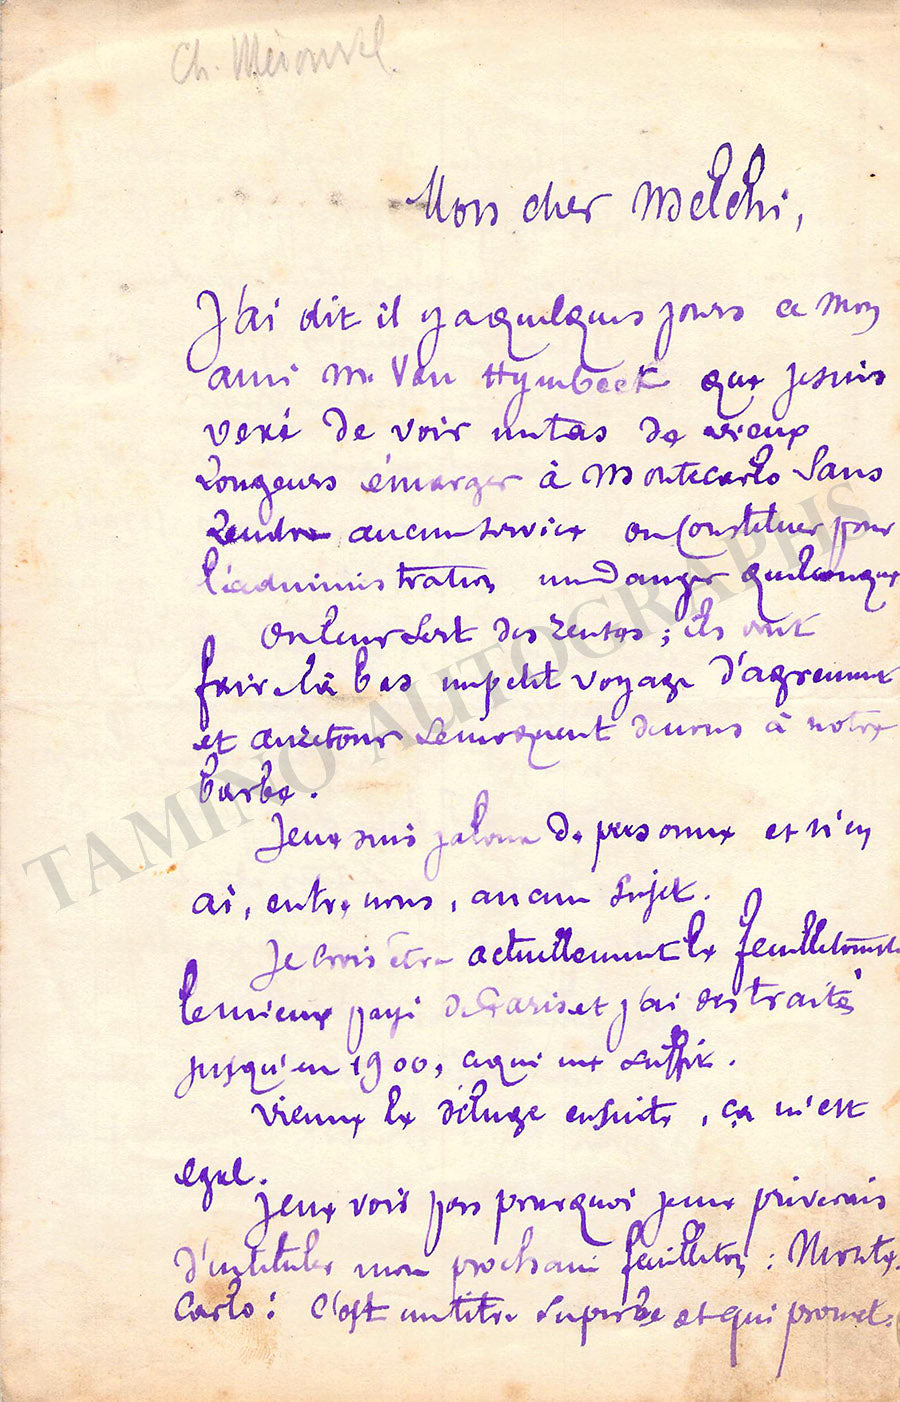 Ch. Mérouvel.
Mon cher Melchi,
J'ai dit il y a quelques jours a mon
ami M. Van Hymbeeck que je suis
vexé de voir un tas de vieux
rongeurs émarger à Montecarlo sans
rendre aucun service ou constituer pour
l'administration un danger quelconque
On leur sert des rentes ; ils vont
faire là bas un petit voyage d'agrément
et au retour se moquent de nous à notre
barbe.
Je ne suis jaloux de personne et n'en
ai, entre nous, aucun sujet.
Je crois être actuellement le feuilletoniste
le mieux payé de Paris et j'ai des traités
jusqu'en 1900, ce qui me suffit.
Vienne le déluge ensuite, ça m'est
egal.
Je ne vois pas pourquoi je me priverais
d'intituler mon prochain feuilleton : Monte-
Carlo ! C'est un titre superbe et qui promet.
TAMINO AUTOGRAPHS